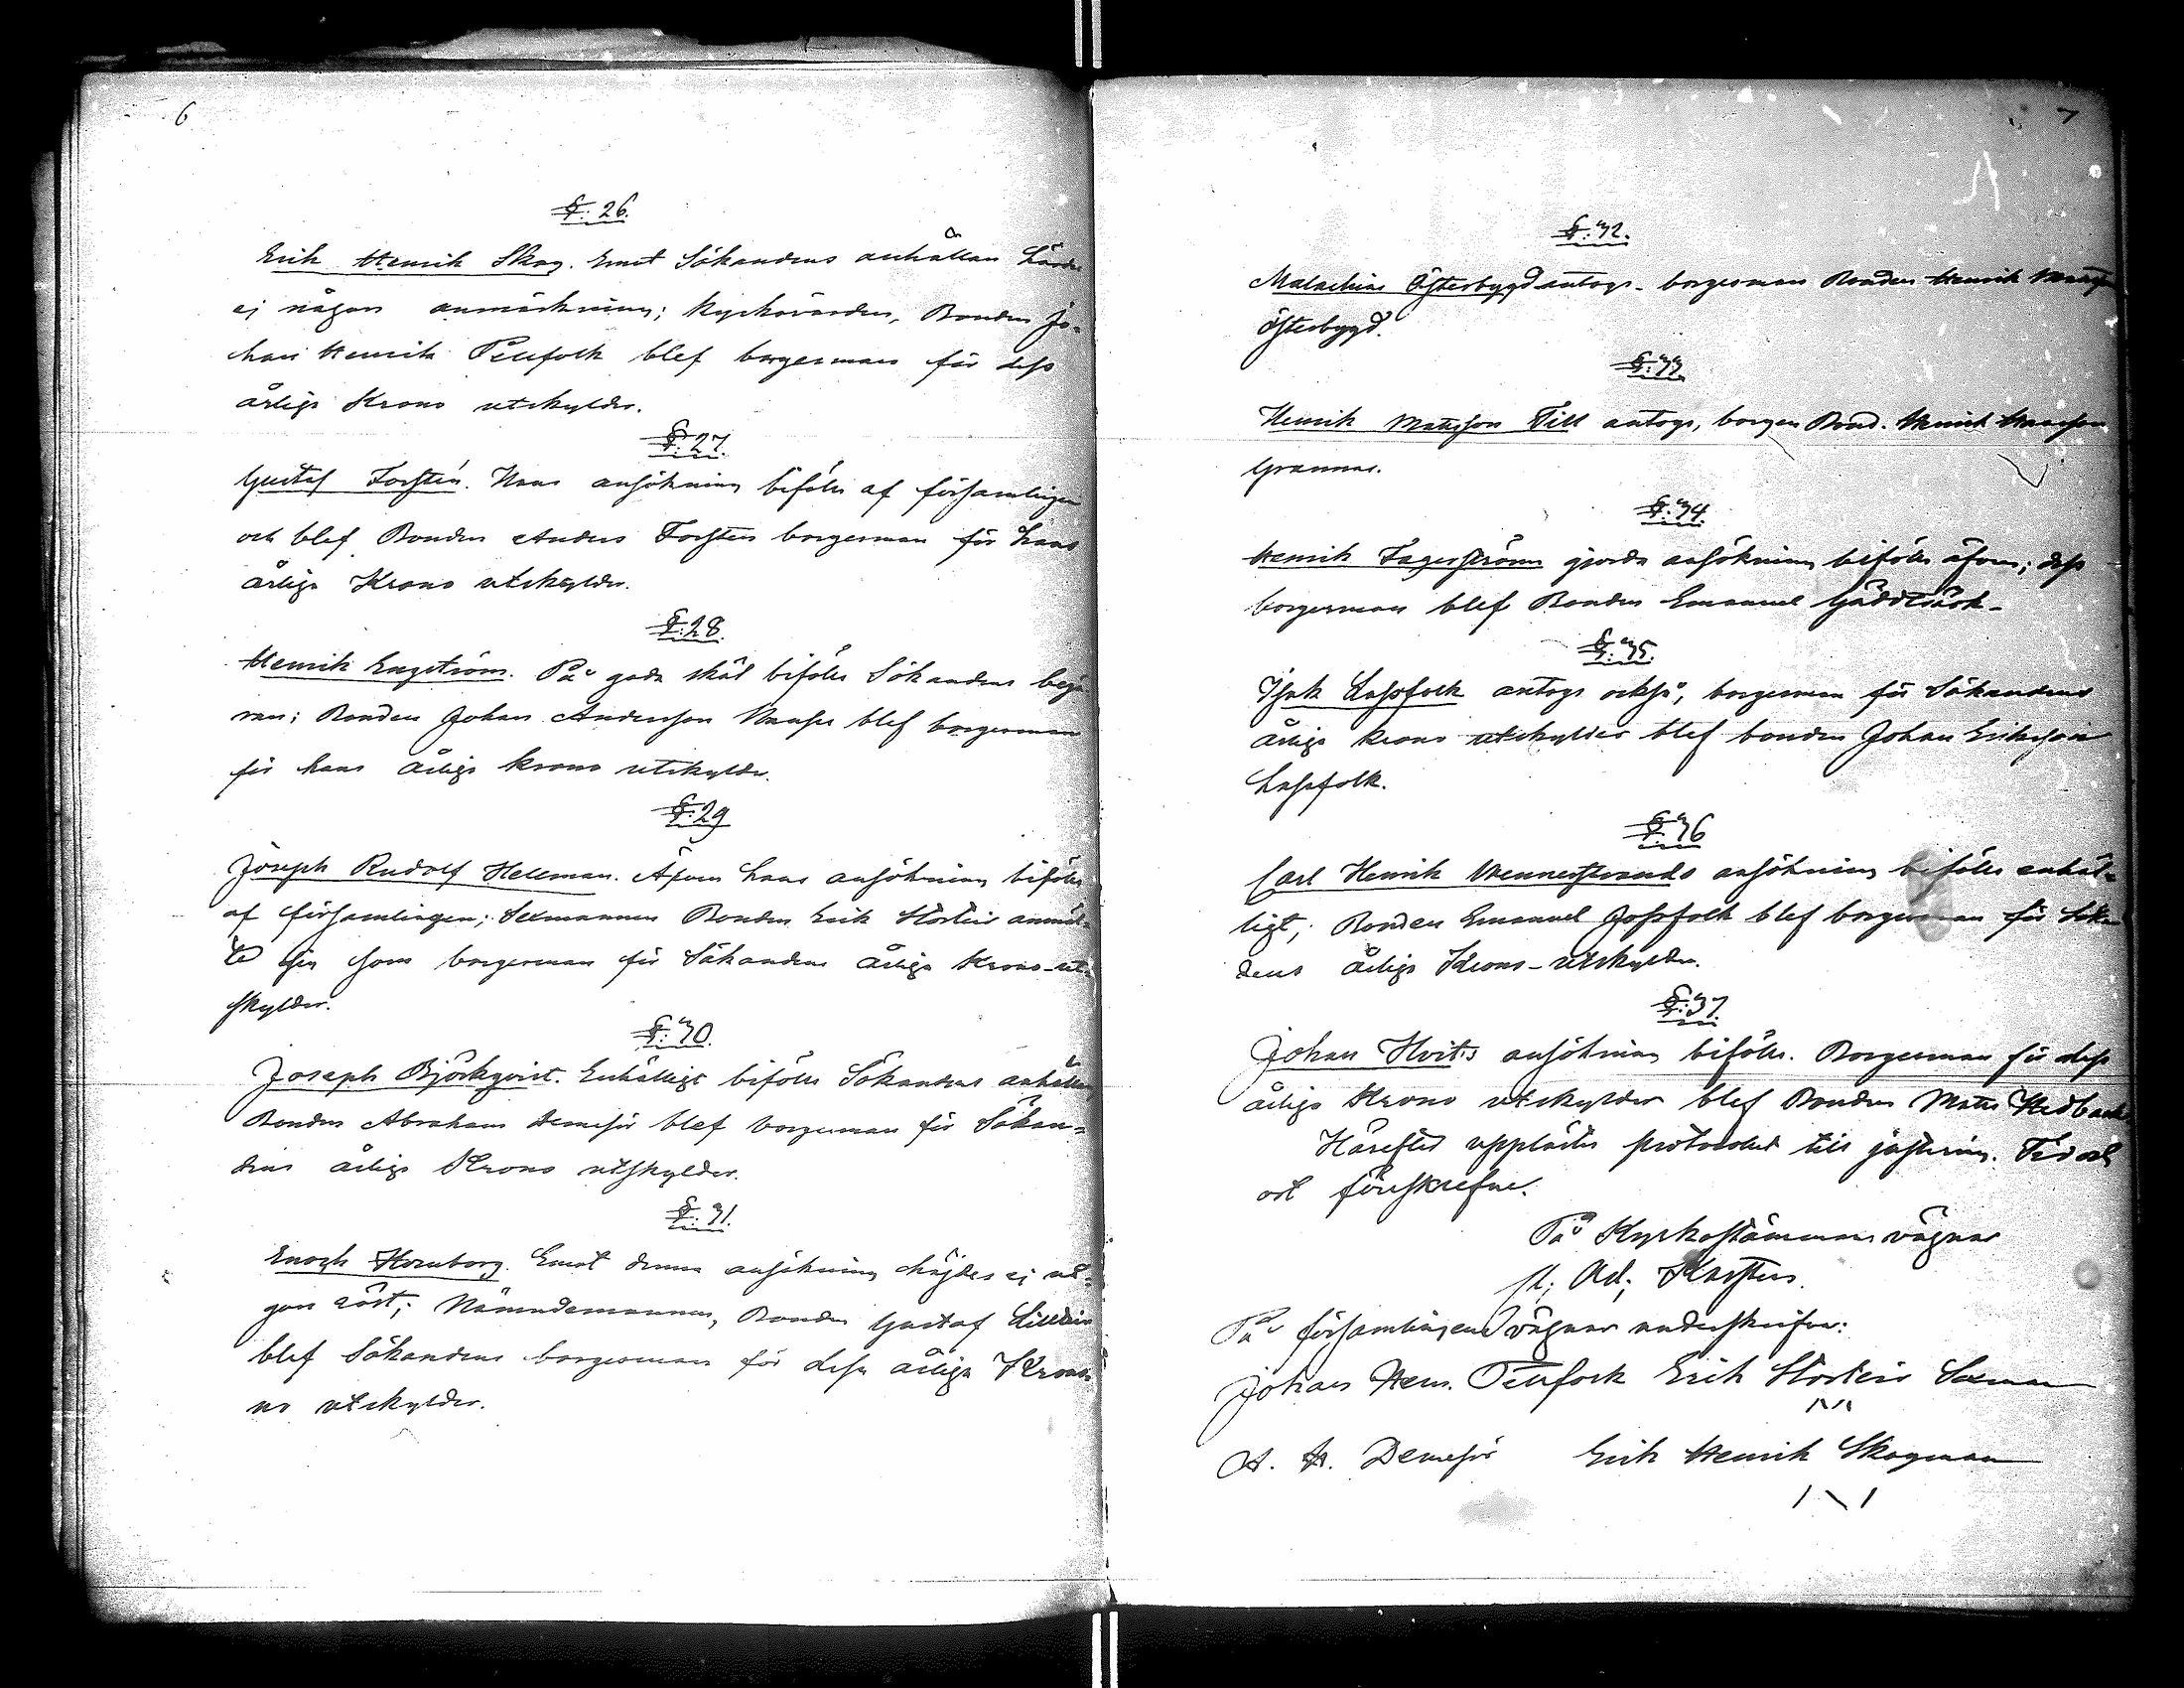 6
§. 26.
Erik Henrik Skog. Emot Sökandens anhållan hördes
ej någon anmärkning; kyrkovärden, Bonden Jo-
han Henrik Pellfolk blef borgesman för dess
årliga Krono utskylder.
§. 27.
Gustaf Forstén. Hans ansökning biföls af församlingen
och blef Bonden Anders Forstén borgesman för hans
årliga Krono utskylder.
§. 28.
Henrik Engström. På goda skäl biföls Sökandens begä
ran; Bonden Johan Andersson blef borgesman
för hans årliga krono utskylder.
§. 29
Joseph Rudolf Hellman. Äfven hans ansökning biföls
af församlingen; Sexmannen Bonden Erik anmäl-
te sig som borgesman för Sökandens årliga Krono-ut-
skylder.
§. 30.
Joseph Björkqvist. Enhälligt biföls Sökandens anhållan
Bonden Abraham blef borgesman för Sökan-
dens årliga Krono utskylder.
§. 31.
Enoch Hornborg. Emot denna ansökning höjdes ej nå-
gon röst; Nämndemannen, Bonden Gustaf
blef Sökandens borgesman för dess årliga Kro-
no utskylder.
7
§. 32.
Malachias Österbygd antogs - borgesman Bonden Henrik Mattsson
Österbygd.
§. 33.
Henrik Mattsson Till antogs, borgen Bond. Henrik
Grannas.
§. 34.
Henrik Fagerströms gjorda ansökning biföls äfven; dess
borgesman blef Bonden Emanuel
§. 35.
Isak Lassfolk antogs också, borgesman för Sökandens
årliga krono utskylder blef bonden Johan Eriksson
Lassfolk.
§. 36
Carl Henrik Wennerstrands ansökning biföls enhäl-
ligt; Bonden Emanuel Jossfolk blef borgesman för Sökan
dens årliga Krono-utskylder.
§. 37.
Johan Hvits ansökning biföls. Borgesman för dess
årliga Krono utskylder blef Bonden Matts Hedback
Härefter upplästes protocollet till justering. Tid och
ort föreskrefne.
På Kyrkostämmans vägnar
Ad; Karsten.
På församlingens vägnar underskrifva:
Johan Hen. Pellfolk Erik Sexman
A. H. Erik Henrik Skogman